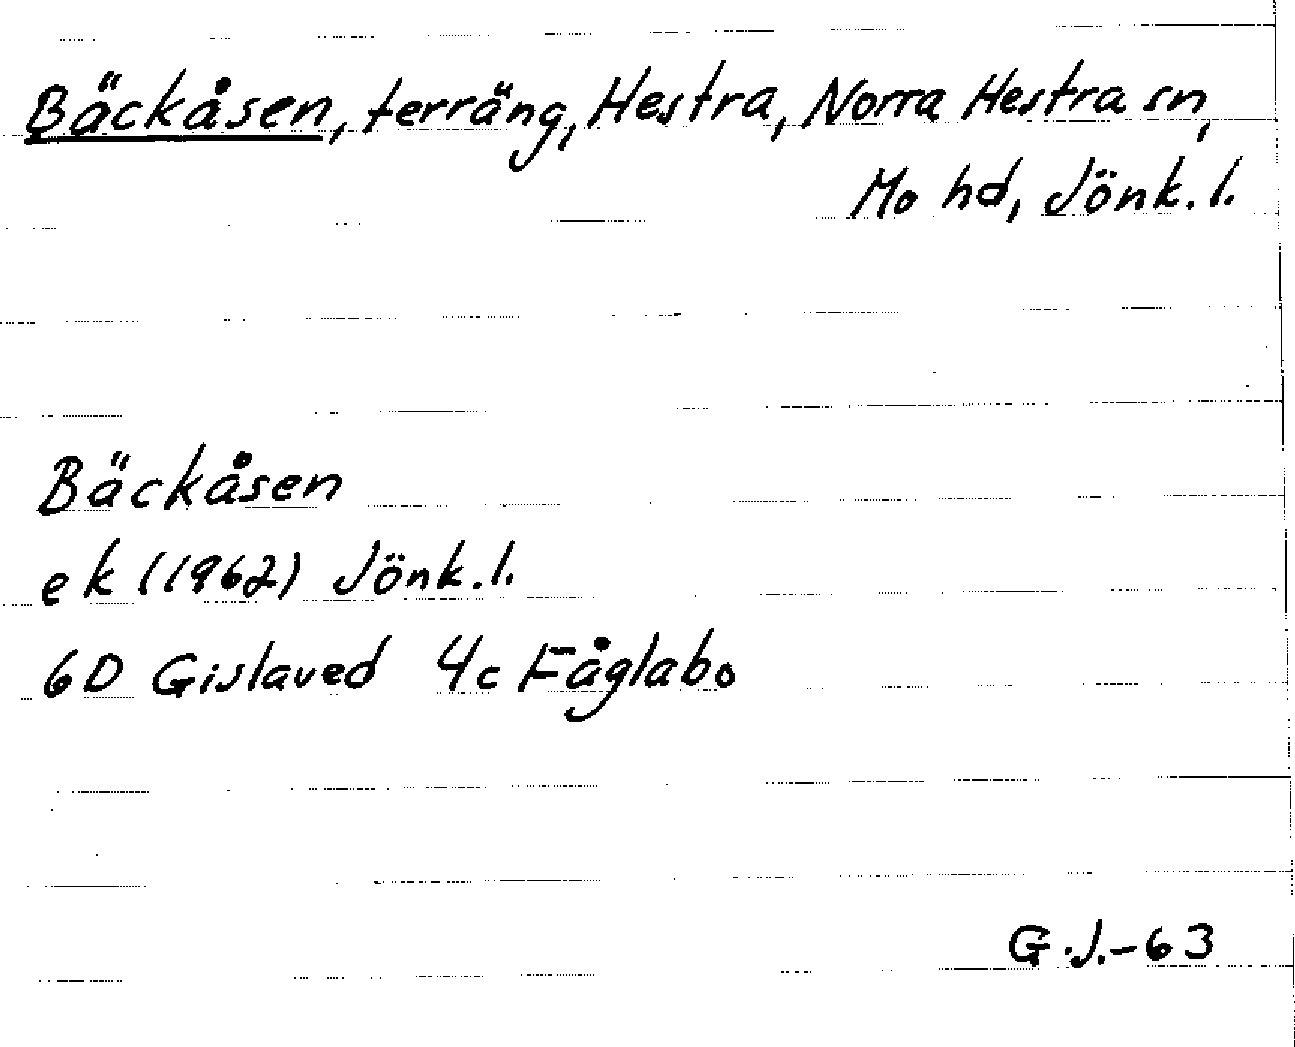 Bäckåsen, terräng, Hestra, Norra Hestra sn,
Mo hd, Jönk. l.
Bäckåsen
ek (1962) Jönk. l.
6D Gislaved 4c Fåglabo
G.J.-63